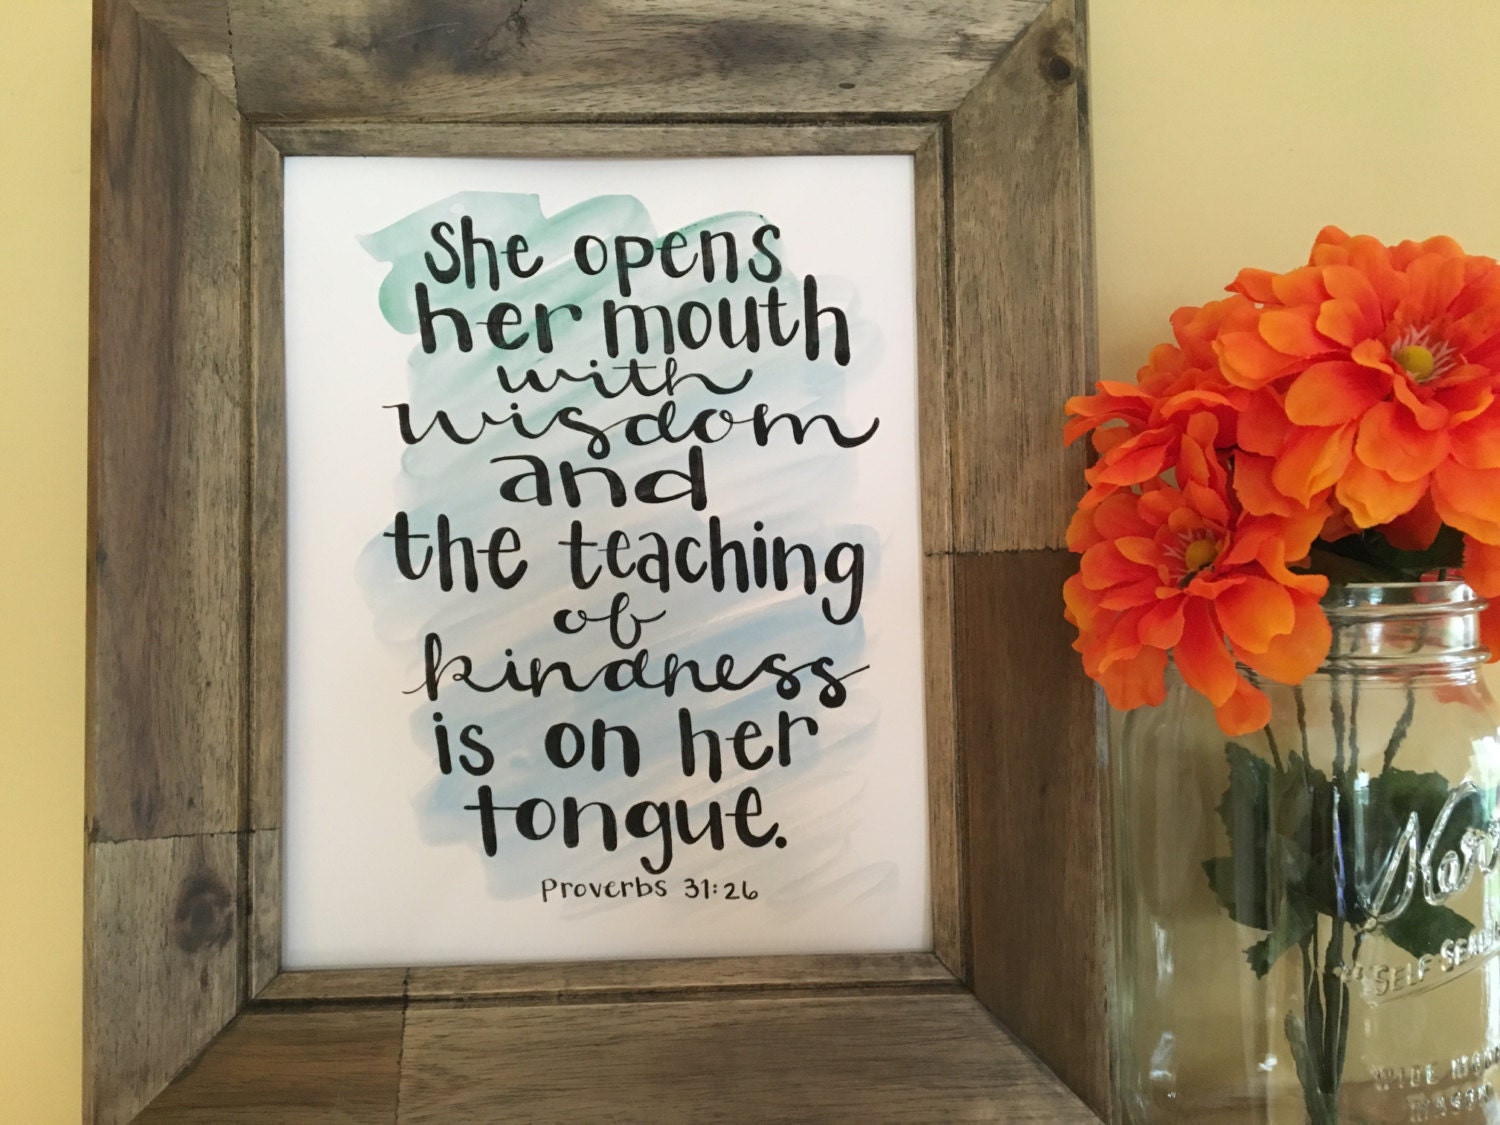 She opens
her mouth
with
wisdom
and
the teaching
of
kindness
is on her
tongue.
Proverbs 31:26
SELF SEAL
WIDE MOUTH
MASON